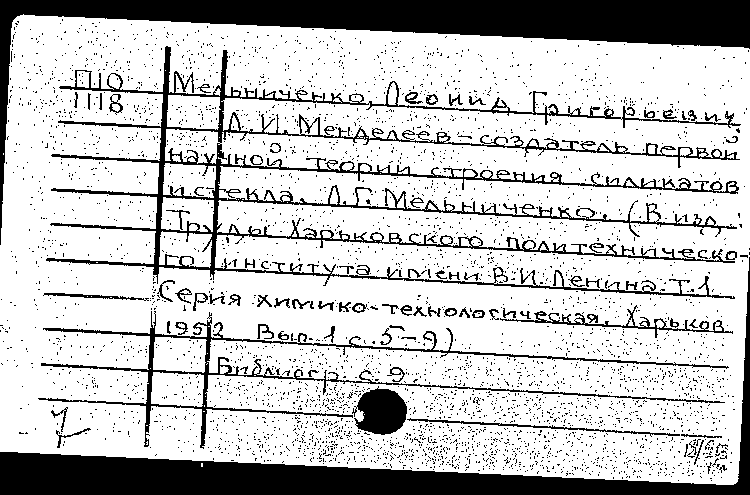 П10 Мельниченко, Леонид Григорьевич.
1118 Д.И. Менделеев - создатель первой
научной теории строения силикатов
и стекла. Л.Г. Мельниченко. (В изд.:
Труды Харьковского политехническо-
го института имени В.И. Ленина. Т.1
Серия химико-технологическая. Харьков
1952 Вып. 1 с. 5-9)
Библиогр. с. 9.